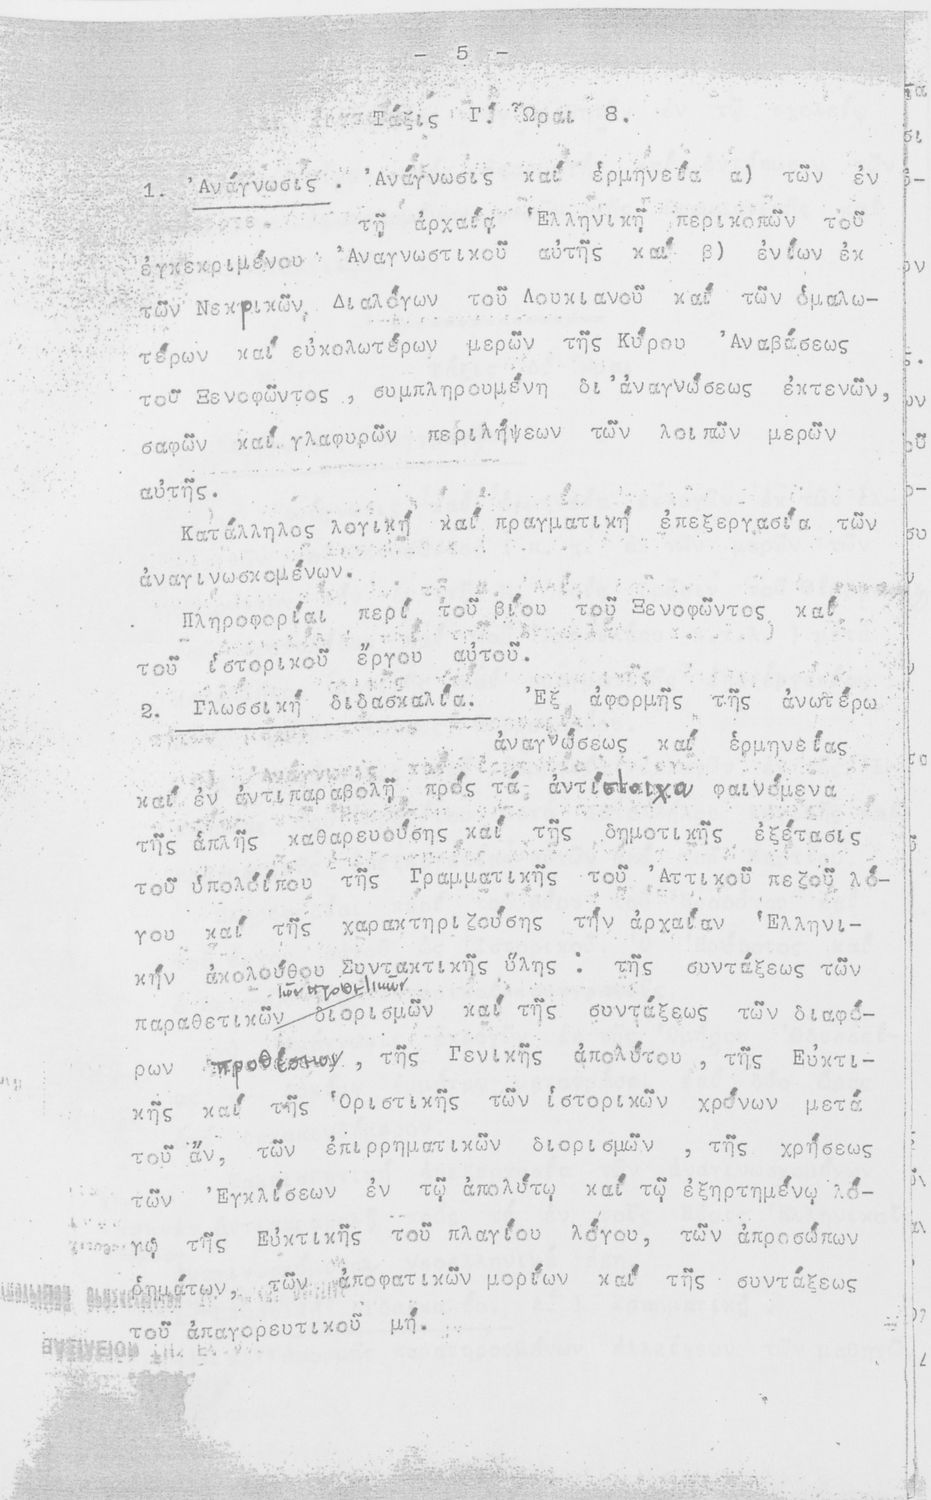 - 5 -
Τάξις Γ! Ὧραι 8.
1. Ἀνάγνωσις . Ἀνάγνωσις καί ἑρμηνεία α) τῶν ἐν
τῇ ἀρχαίᾳ Ἑλληνικῇ περικοπῶν τοῦ
ἐγκεκριμένου Ἀναγνωστικοῦ αὐτῆς καί β) ἐνίων ἐκ
τῶν Νεκρικῶν Διαλόγων τοῦ Λουκιανοῦ καί τῶν ὁμαλω-
τέρων καί εὐκολωτέρων μερῶν τῆς Κύρου Ἀναβάσεως
τοῦ Ξενοφῶντος , συμπληρουμένη δι'ἀναγνώσεως ἐκτενῶν,
σαφῶν καί γλαφυρῶν περιλήψεων τῶν λοιπῶν μερῶν
αὐτῆς.
Κατάλληλος λογική καί πραγματική ἐπεξεργασία τῶν
ἀναγινωσκομένων.
Πληροφορίαι περί τοῦ βίου τοῦ Ξενοφῶντος καί
τοῦ ἱστορικοῦ ἔργου αὐτοῦ.
2. Γλωσσική διδασκαλία. Ἐξ ἀφορμῆς τῆς ἀνωτέρω
ἀναγνώσεως καί ἑρμηνείας
καί ἐν ἀντιπαραβολῇ πρός τά ἀντίστοιχα φαινόμενα
τῆς ἁπλῆς καθαρευούσης καί τῆς δημοτικῆς ἐξέτασις
τοῦ ὑπολοίπου τῆς Γραμματικῆς τοῦ Ἀττικοῦ πεζοῦ λό-
γου καί τῆς χαρακτηριζούσης τήν ἀρχαίαν Ἑλληνι-
κήν ἀκολούθου Συντακτικῆς ὕλης : τῆς συντάξεως τῶν
τῶν προθετικῶν
παραθετικῶν διορισμῶν καί τῆς συντάξεως τῶν διαφό-
ρων προθέσεων , τῆς Γενικῆς ἀπολύτου , τῆς Εὐκτι-
κῆς καί τῆς Ὁριστικῆς τῶν ἱστορικῶν χρόνων μετά
τοῦ ἄν, τῶν ἐπιρρηματικῶν διορισμῶν , τῆς χρήσεως
τῶν Ἐγκλίσεων ἐν τῷ ἀπολύτῳ καί τῷ ἐξηρτημένῳ λό-
γῳ τῆς Εὐκτικῆς τοῦ πλαγίου λόγου, τῶν ἀπροσώπων
ῥημάτων, τῶν ἀποφατικῶν μορίων καί τῆς συντάξεως
τοῦ ἀπαγορευτικοῦ μή.